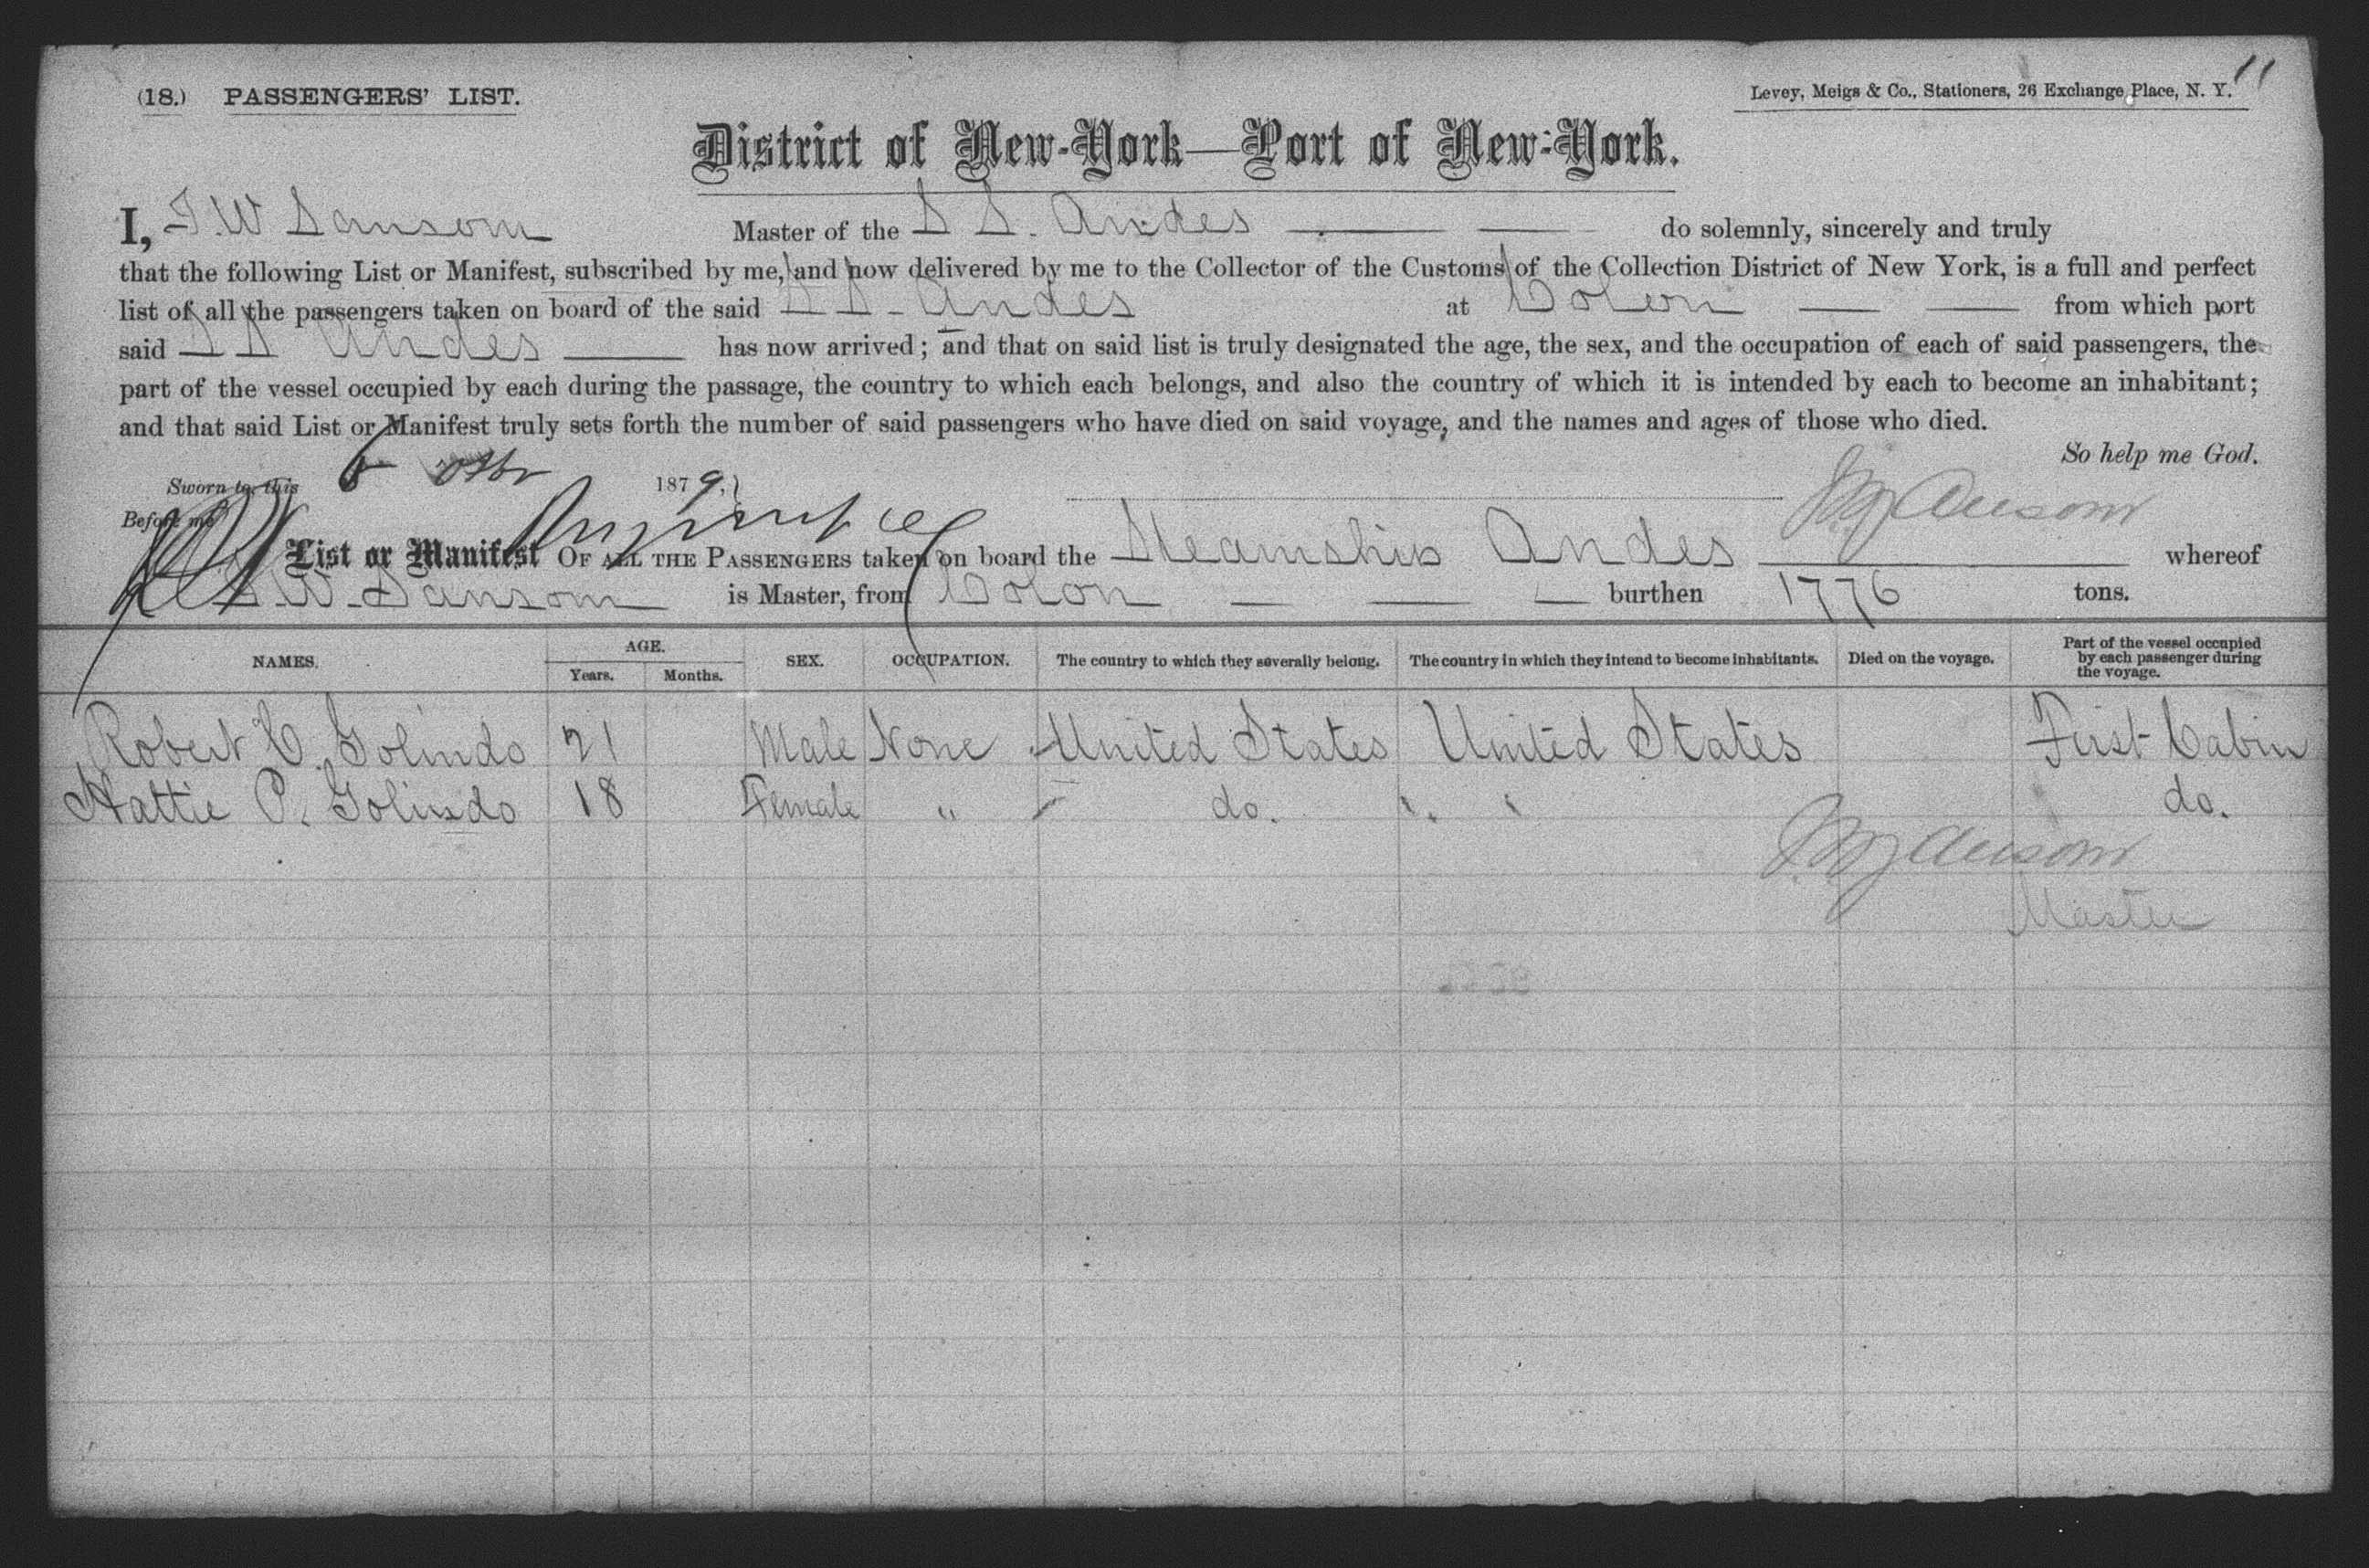 (18.) PASSENGERS' LIST.
Levey, Meigs & Co., Stationers, 26 Exchange Place, N. Y. 11
District of New-York—Port of New-York.
I, F. W Sansom Master of the S S. Andes do solemnly, sincerely and truly
that the following List or Manifest, subscribed by me, and now delivered by me to the Collector of the Customs of the Collection District of New York, is a full and perfect
list of all the passengers taken on board of the said S S. Andes at Colon from which port
said S S Andes has now arrived; and that on said list is truly designated the age, the sex, and the occupation of each of said passengers, the
part of the vessel occupied by each during the passage, the country to which each belongs, and also the country of which it is intended by each to become an inhabitant;
and that said List or Manifest truly sets forth the number of said passengers who have died on said voyage, and the names and ages of those who died.
So help me God.
Sworn to, this 6 1879,
Before me
List or Manifest OF ALL THE PASSENGERS taken on board the Steamship Andes whereof
F. W. Sansom is Master, from Colon burthen 1776 tons.
NAMES. AGE. Years. Months. SEX. OCCUPATION. The country to which they severally belong. The country in which they intend to become inhabitants. Died on the voyage. Part of the vessel occupied by each passenger during the voyage.
Robert C. Golindo 21 Male None United States United States First Cabin
Hattie P. Golindo 18 Female " do. " " do.
F. W. Sansom
Master